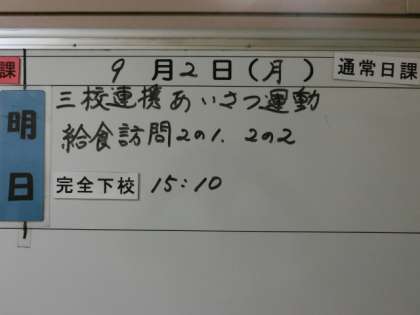 課 9月2日(月) 通常日課
明日
三校連携あいさつ運動
給食訪問2の1. 2の2
完全下校 15:10